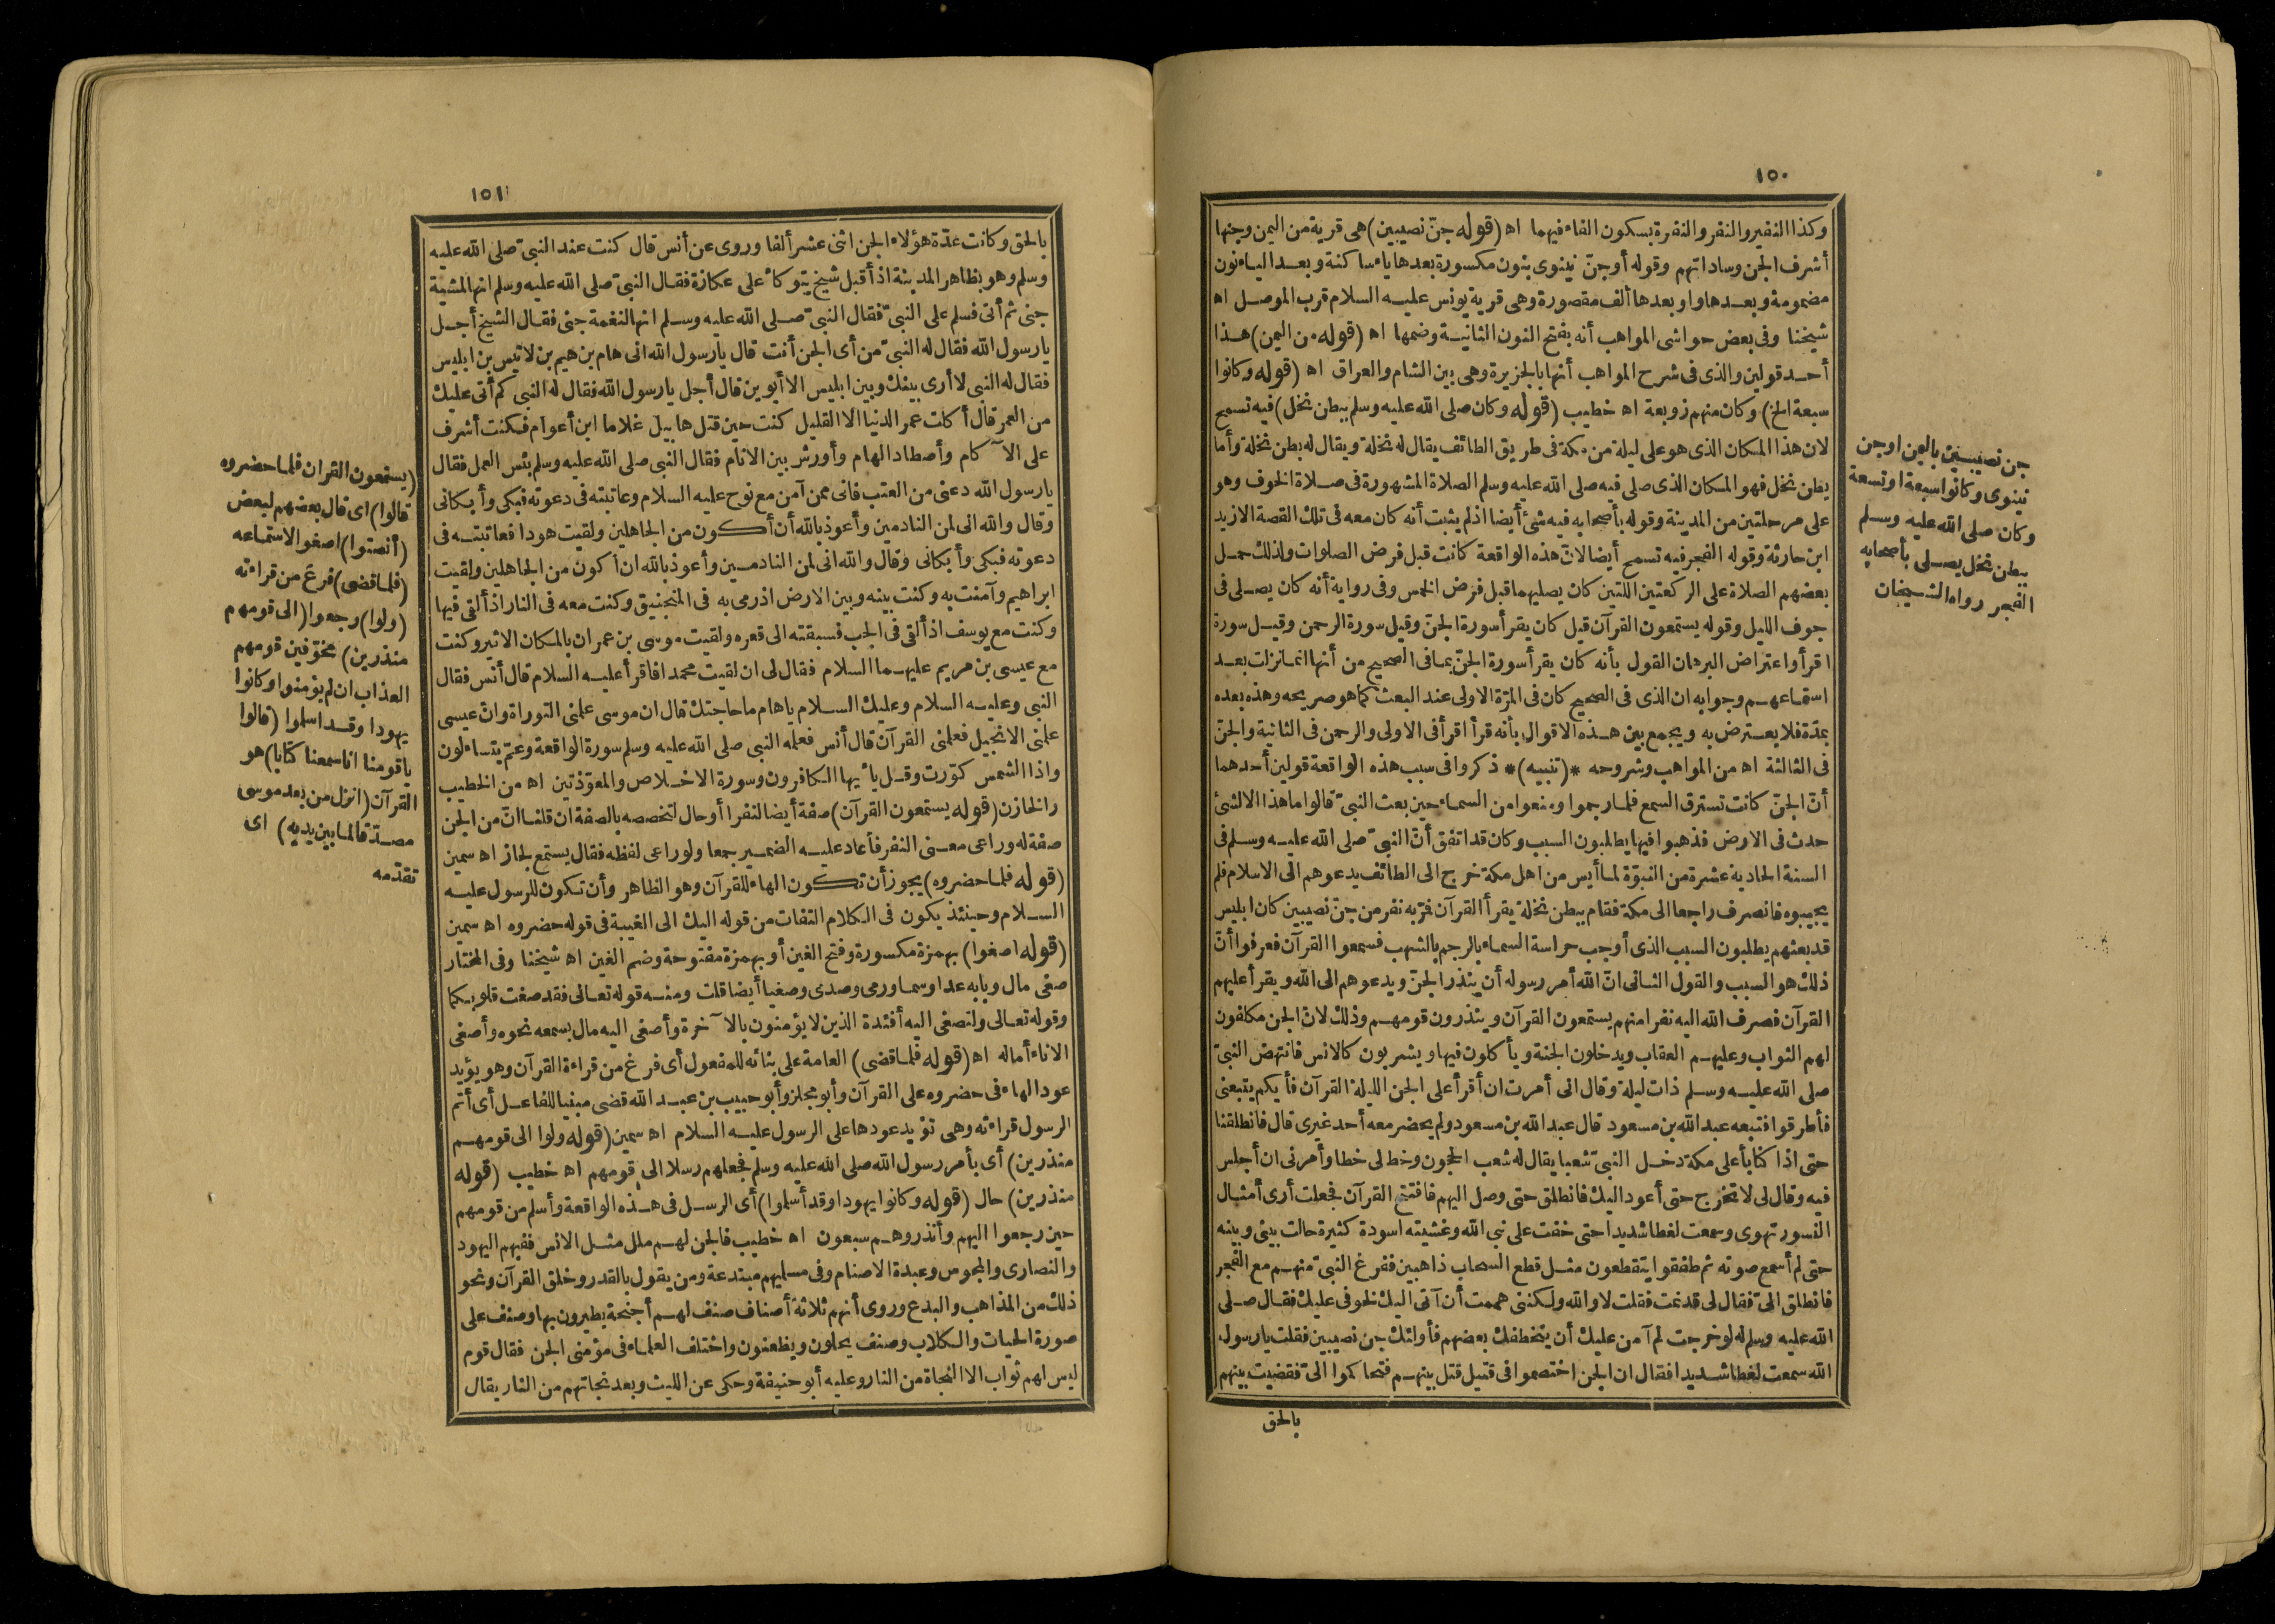 ١٥٠
وكذا النفير والنفر والنفرة بسكون الفاء فيهما اه (قوله جنّ نصيبين) هى قرية من اليمن وجنها
أشرف الجن وساداتهم وقوله أو جنّ نينوى بنون مكسورة بعدها ياء ساكنة وبعد الياء نون
مضمومة وبعدها واو وبعدها ألف مقصورة وهى قرية يونس عليه السلام قرب الموصل اه
شيخنا وفى بعض حواشى المواهب أنه بفتح النون الثانية وضمها اه (قوله من اليمن) هذا
أحد قولين والذى فى شرح المواهب أنها بالجزيرة وهى بين الشام والعراق اه (قوله وكانوا
سبعة الخ) وكان منهم زوبعة اه خطيب (قوله وكان صلى الله عليه وسلم ببطن نخل) فيه تسمح
لان هذا المكان الذى هو على ليلة من مكة فى طريق الطائف يقال له نخلة ويقال له بطن نخلة وأما
بطن نخل فهو المكان الذى صلى فيه صلى الله عليه وسلم الصلاة المشهورة فى صلاة الخوف وهو
على مرحلتين من المدينة وقوله بأصحابه فيه شئ أيضا اذ لم يثبت أنه كان معه فى تلك القصة الا زيد
ابن حارثة وقوله الفجر فيه تسمح أيضا لانّ هذه الواقعة كانت قبل فرض الصلوات ولذلك حمل
بعضهم الصلاة على الركعتين اللتين كان يصليهما قبل فرض الخمس وفى رواية أنه كان يصلى فى
جوف الليل وقوله يستمعون القرآن قيل كان يقرأ سورة الجنّ وقيل سورة الرحمن وقيل سورة
اقرأ واعتراض البرهان القول بأنه كان يقرأ سورة الجنّ بما فى الصحيح من أنها انما نزلت بعد
استماعهم وجوابه ان الذى فى الصحيح كان فى المرّة الاولى عند البعث كما هو صريحه وهذه بعده
بمدّة فلا يعترض به ويجمع بين هذه الاقوال بأنه قرأ اقرأ فى الاولى والرحمن فى الثانية والجنّ
فى الثالثة اه من المواهب وشروحه *(تنبيه)* ذكروا فى سبب هذه الواقعة قولين أحدهما
أنّ الجنّ كانت تسترق السمع فلما رجموا ومنعوا من السماء حين بعث النبىّ قالوا ما هذا الا لشئ
حدث فى الارض فذهبوا فيها يطلبون السبب وكان قد اتفق أنّ النبىّ صلى الله عليه وسلم فى
السنة الحادية عشرة من النبوّة لما أيس من اهل مكة خرج الى الطائف يدعوهم الى الاسلام فلم
يجيبوه فانصرف راجعا الى مكة فقام ببطن نخلة يقرأ القرآن فمرّ به نفر من جنّ نصيبين كان ابليس
قد بعثهم يطلبون السبب الذى أوجب حراسة السماء بالرجم بالشهب فسمعوا القرآن فعرفوا أنّ
ذلك هو السبب والقول الثانى انّ الله أمر رسوله أن ينذر الجنّ ويدعوهم الى الله ويقرأ عليهم
القرآن فصرف الله اليه نفرا منهم يستمعون القرآن وينذرون قومهم وذلك لانّ الجن مكلفون
لهم الثواب وعليهم العقاب ويدخلون الجنة ويأكلون فيها ويشربون كالانس فانتهض النبىّ
صلى الله عليه وسلم ذات ليلة وقال انى أمرت ان أقرأ على الجن الليلة القرآن فأيكم يتبعنى
فأطرقوا فتبعه عبد الله بن مسعود قال عبد الله بن مسعود ولم يحضر معه أحد غيرى قال فانطلقنا
حتى اذا كنا بأعلى مكة دخل النبىّ شعبا يقال له شعب الحجون وخط لى خطا وأمرنى ان أجلس
فيه وقال لى لا تخرج حتى أعود اليك فانطلق حتى وصل اليهم فافتتح القرآن فجعلت أرى أمثال
النسور تهوى وسمعت لغطا شديدا حتى خفت على نبى الله وغشيته اسودة كثيرة حالت بينى وبينه
حتى لم أسمع صوته ثم طفقوا يتقطعون مثل قطع السحاب ذاهبين ففرغ النبىّ منهم مع الفجر
فانطلق الىّ فقال لى قد نمت فقلت لا والله ولكننى هممت أن آتى اليك لخوفى عليك فقال صلى
الله عليه وسلم له لو خرجت لم آمن عليك أن يتخطفك بعضهم فأولئك جن نصيبين فقلت يا رسول
الله سمعت لغطا شديدا فقال ان الجن اختصموا فى قتيل قتل بينهم فتحاكموا الىّ فقضيت بينهم
بالحق
جن نصيبين باليمن او جن
نينوى وكانوا سبعة او تسعة
وكان صلى الله عليه وسلم
ببطن نخل يصلى بأصحابه
الفجر رواه الشيخان
١٥١
بالحق وكانت عدّة هؤلاء الجن اثنى عشر ألفا وروى عن أنس قال كنت عند النبىّ صلى الله عليه
وسلم وهو بظاهر المدينة اذ أقبل شيخ يتوكأ على عكازة فقال النبىّ صلى الله عليه وسلم انها لمشية
جنى ثم أتى فسلم على النبىّ فقال النبىّ صلى الله عليه وسلم انها لنغمة جنى فقال الشيخ أجل
يا رسول الله فقال له النبىّ من أى الجن أنت قال يا رسول الله انى هام بن هيم بن لاقيس بن ابليس
فقال له النبى لا أرى بينك وبين ابليس الا أبوين قال أجل يا رسول الله فقال له النبى كم أتى عليك
من العمر قال أكلت عمر الدنيا الا القليل كنت حين قتل هابيل غلاما ابن أعوام فكنت أشرف
على الآكام وأصطاد الهام وأورش بين الانام فقال النبى صلى الله عليه وسلم بئس العمل فقال
يا رسول الله دعنى من العتب فانى ممن آمن مع نوح عليه السلام وعاتبته فى دعوته فبكى وأبكانى
وقال والله انى لمن النادمين وأعوذ بالله أن أكون من الجاهلين ولقيت هودا فعاتبته فى
دعوته فبكى وأبكانى وقال والله انى لمن النادمين وأعوذ بالله ان أكون من الجاهلين ولقيت
ابراهيم وآمنت به وكنت بينه وبين الارض اذ رمى به فى المنجنيق وكنت معه فى النار اذ ألقى فيها
وكنت مع يوسف اذ ألقى فى الجب فسبقته الى قعره ولقيت موسى بن عمران بالمكان الاثير وكنت
مع عيسى بن مريم عليهما السلام فقال لى ان لقيت محمدا فاقرأ عليه السلام قال أنس فقال
النبى وعليه السلام وعليك السلام يا هام ما حاجتك قال ان موسى علمنى التوراة وانّ عيسى
علمنى الانجيل فعلمنى القرآن قال أنس فعلمه النبى صلى الله عليه وسلم سورة الواقعة وعمّ يتساءلون
واذا الشمس كوّرت وقل يأيها الكافرون وسورة الاخلاص والمعوّذتين اه من الخطيب
والخازن (قوله يستمعون القرآن) صفة أيضا لنفرا أو حال لتخصصه بالصفة ان قلنا انّ من الجن
صفة له وراعى معنى النفر فأعاد عليه الضمير جمعا ولو راعى لفظه فقال يستمع لجاز اه سمين
(قوله فلما حضروه) يجوز أن تكون الهاء للقرآن وهو الظاهر وأن تكون للرسول عليه
السلام وحينئذ يكون فى الكلام التفات من قوله اليك الى الغيبة فى قوله حضروه اه سمين
(قوله اصغوا) بهمزة مكسورة وفتح الغين أو بهمزة مفتوحة وضم الغين اه شيخنا وفى المختار
صغى مال وبابه عدا وسما ورمى وصدى وصغيا أيضا قلت ومنه قوله تعالى فقد صغت قلوبكما
وقوله تعالى ولتصغى اليه أفئدة الذين لا يؤمنون بالآخرة وأصغى اليه مال بسمعه نحوه وأصغى
الاناء أماله اه (قوله فلما قضى) العامة على بنائه للمفعول أى فرغ من قراءة القرآن وهو يؤيد
عود الهاء فى حضروه على القرآن وأبو مجلز وأبو حبيب بن عبد الله قضى مبنيا للفاعل أى أتم
الرسول قراءته وهى تؤيد عودها على الرسول عليه السلام اه سمين (قوله ولوا الى قومهم
منذرين) أى بأمر رسول الله صلى الله عليه وسلم فجعلهم رسلا الى قومهم اه خطيب (قوله
منذرين) حال (قوله وكانوا يهودا وقد أسلموا) أى الرسل فى هذه الواقعة وأسلم من قومهم
حين رجعوا اليهم وأنذروهم سبعون اه خطيب فالجن لهم ملل مثل الانس ففيهم اليهود
والنصارى والمجوس وعبدة الاصنام وفى مسلميهم مبتدعة ومن يقول بالقدر وخلق القرآن ونحو
ذلك من المذاهب والبدع وروى أنهم ثلاثة أصناف صنف لهم أجنحة يطيرون بها وصنف على
صورة الحيات والكلاب وصنف يحلون ويظعنون واختلف العلماء فى مؤمنى الجن فقال قوم
ليس لهم ثواب الا النجاة من النار وعليه أبو حنيفة وحكى عن الليث وبعد نجاتهم من النار يقال
(يستمعون القران فلما حضروه
قالوا) اى قال بعضهم لبعض
(أنصتوا) اصغوا لاستماعه
(فلما قضى) فرغ من قراءته
(ولوا) رجعوا (الى قومهم
منذرين) مخوّفين قومهم
العذاب ان لم يؤمنوا وكانوا
يهودا وقد اسلموا (قالوا
يا قومنا انا سمعنا كتابا) هو
القرآن (انزل من بعد موسى
مصدّقا لما بين يديه) اى
تقدّمه